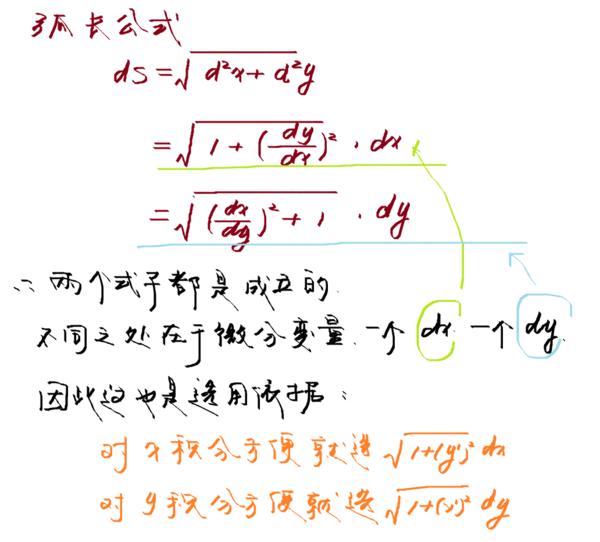 弧长公式
ds=√(d²x+d²y)
=√(1+(dy/dx)²)·dx
=√((dx/dy)²+1)·dy
∴ 两个式子都是成立的.
不同之处在于微分变量.一个 dx 一个 dy.
因此这也是选用依据：
对 x 积分方便就选√(1+(y')²) dx
对 y 积分方便就选√(1+(x')²) dy